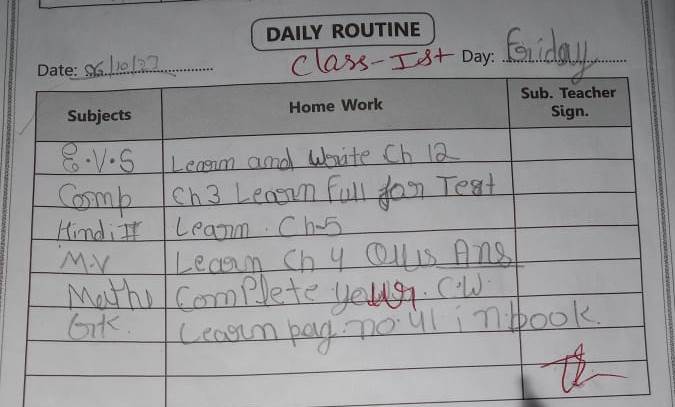 DAILY ROUTINE
Date: 06/10/23 Class-Ist Day: Friday
Subjects Home Work Sub. Teacher Sign.
E.V.S Learn and Write Ch 12
Comp Ch 3 Learn Full for Test
Hindi II Learn. Ch-5
M.V Learn Ch 4 Qus Ans
Maths Complete your C.W.
G.K. Learn pag no. 41 in book.